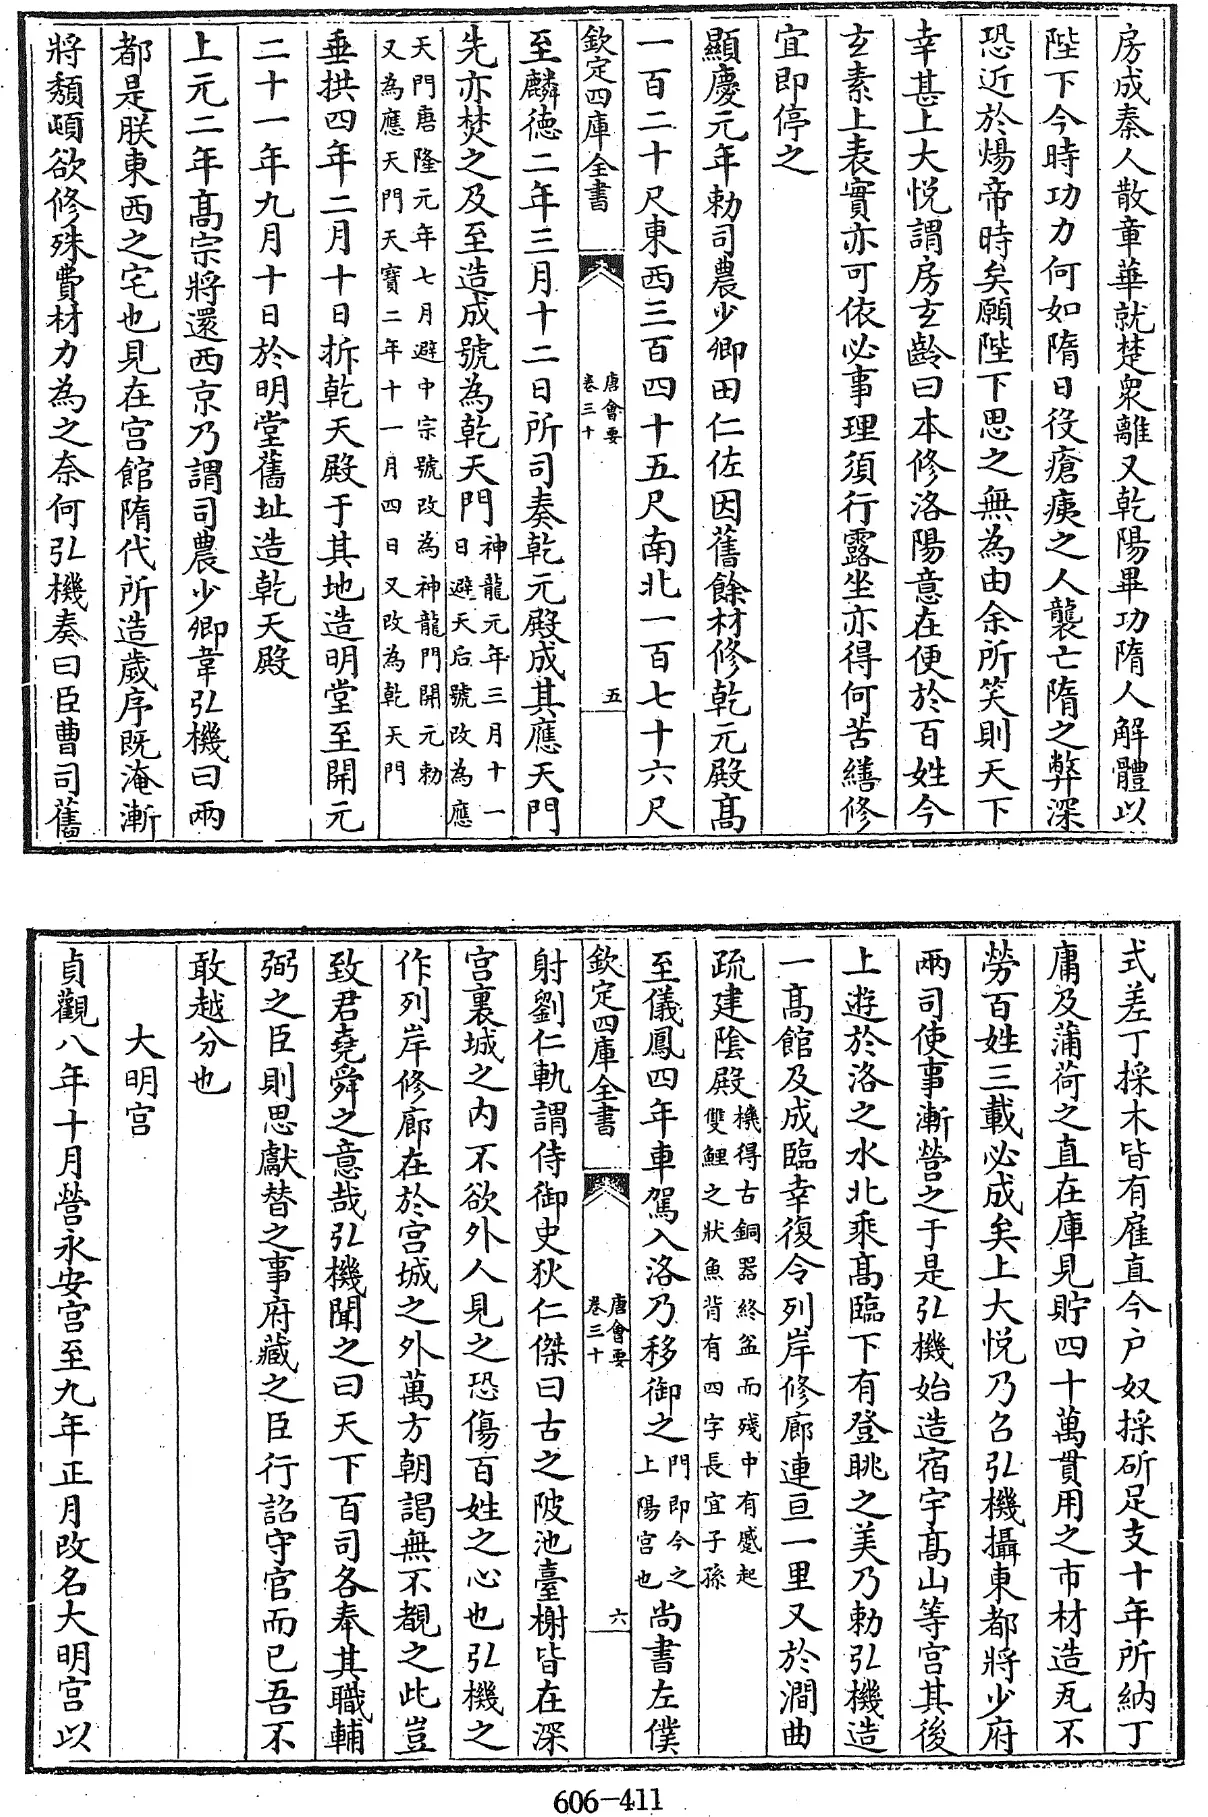 房成秦人散章華就楚衆離又乾陽畢功隋人解體以
陛下今時功力何如隋日役瘡痍之人襲亡隋之弊深
恐近於煬帝時矣願陛下思之無為由余所笑則天下
幸甚上大悅謂房玄齡曰本修洛陽意在便於百姓今
玄素上表實亦可依必事理須行露坐亦得何苦繕修
宜即停之
顯慶元年勅司農少卿田仁佐因舊餘材修乾元殿高
一百二十尺東西三百四十五尺南北一百七十六尺
欽定四庫全書
唐會要
卷三十
五
至麟徳二年三月十二日所司奏乾元殿成其應天門
先亦焚之及至造成號為乾天門神龍元年三月十一
日避天后號改為應
天門唐隆元年七月避中宗號改為神龍門開元勅
又為應天門天寳二年十一月四日又改為乾天門
垂拱四年二月十日拆乾天殿于其地造明堂至開元
二十一年九月十日於明堂舊址造乾天殿
上元二年高宗將還西京乃謂司農少卿韋弘機曰兩
都是朕東西之宅也見在宫館隋代所造歲序既淹漸
將頽頓欲修殊費材力為之奈何弘機奏曰臣曹司舊
式差丁採木皆有雇直今户奴採斫足支十年所納丁
庸及蒲荷之直在庫見貯四十萬貫用之市材造瓦不
勞百姓三載必成矣上大悅乃召弘機攝東都將少府
兩司使事漸營之于是弘機始造宿宇高山等宫其後
上遊於洛之水北乘高臨下有登眺之美乃勅弘機造
一高館及成臨幸復令列岸修廊連亘一里又於澗曲
疏建陰殿機得古銅器終盆而殘中有蹙起
雙鯉之狀魚背有四字長宜子孫
至儀鳳四年車駕入洛乃移御之門即今之
上陽宫也尚書左僕
欽定四庫全書
唐會要
卷三十
六
射劉仁軌謂侍御史狄仁傑曰古之陂池臺榭皆在深
宫裏城之内不欲外人見之恐傷百姓之心也弘機之
作列岸修廊在於宫城之外萬方朝謁無不覩之此豈
致君堯舜之意哉弘機聞之曰天下百司各奉其職輔
弼之臣則思獻替之事府藏之臣行詔守官而已吾不
敢越分也
大明宫
貞觀八年十月營永安宫至九年正月改名大明宫以
606-411